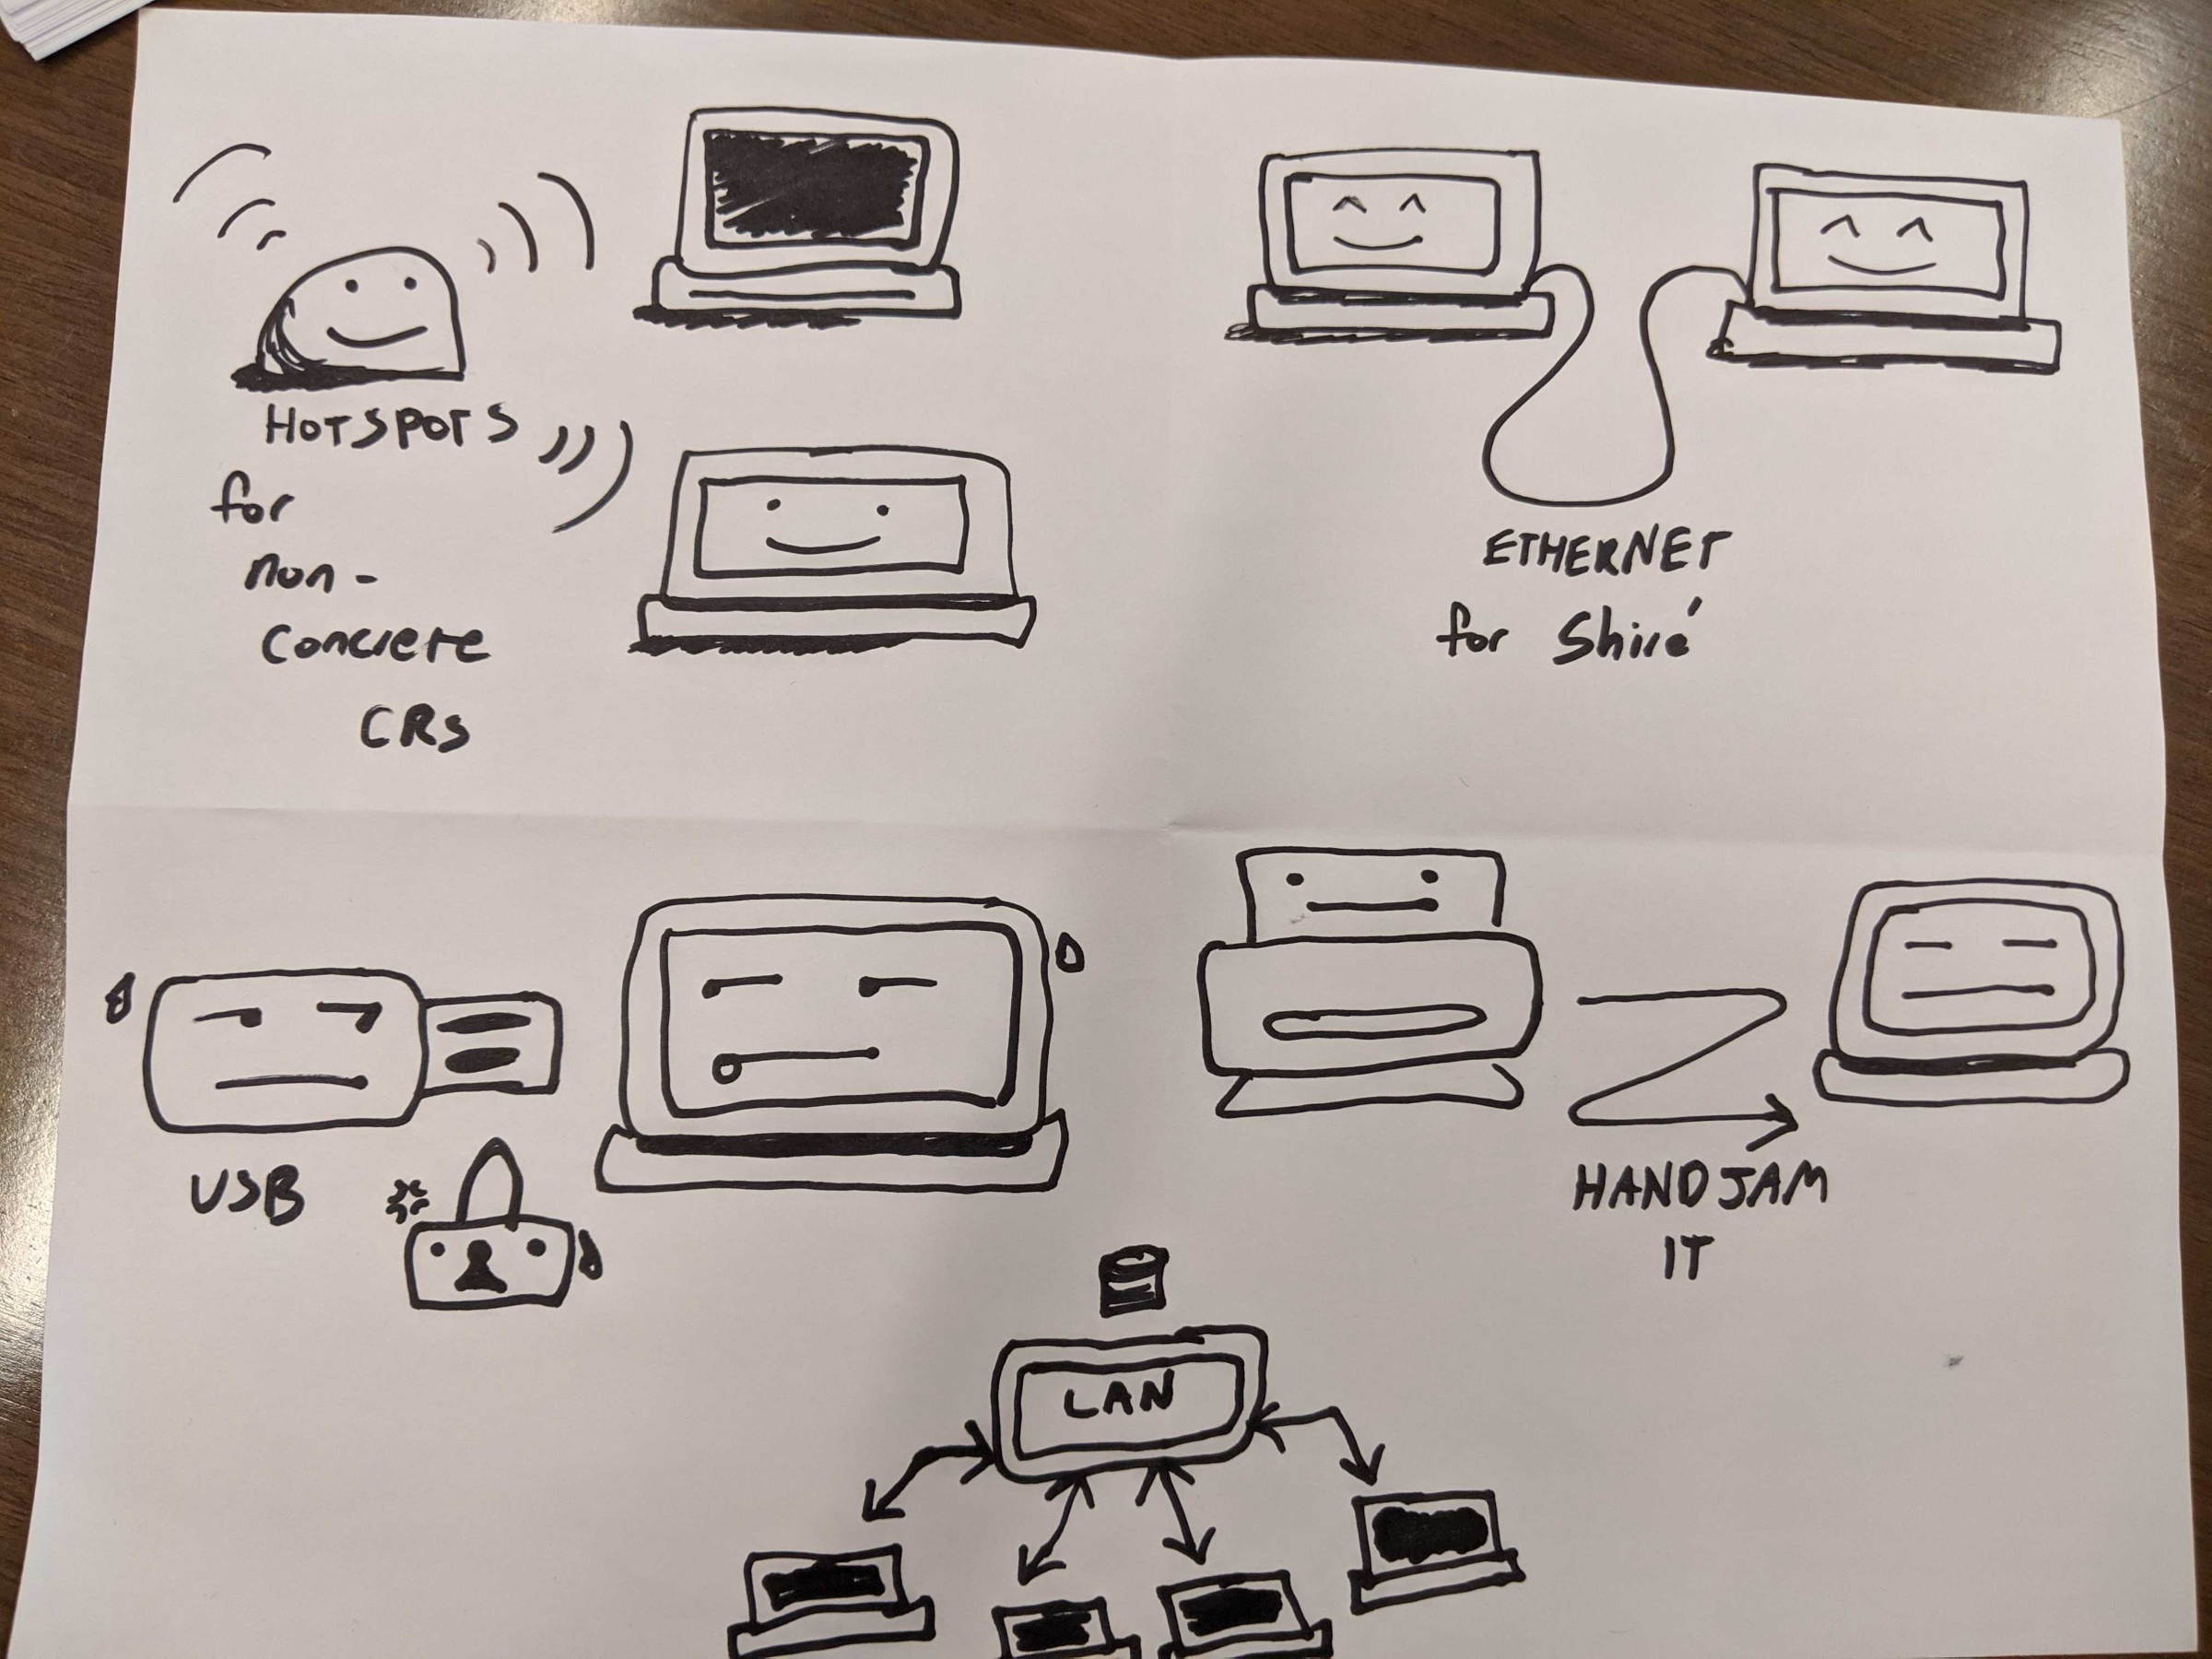 HOTSPOTS
for
non-
concrete
CRs
ETHERNET
for Shiré
USB
HANDJAM
IT
LAN